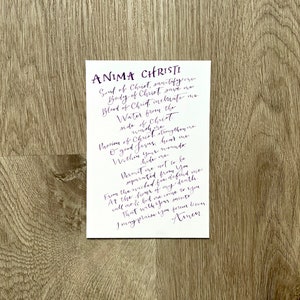 ANIMA CHRISTI
Soul of Christ, sanctify me
Body of Christ, save me
Blood of Christ, inebriate me
Water from the
side of Christ
wash me
Passion of Christ, strengthen me
O good Jesus, hear me
Within your wounds
hide me
Permit me not to be
separated from you
From the wicked foe defend me
At the hour of my death
call me & bid me come to you
That with your saints
I may praise you
Amen